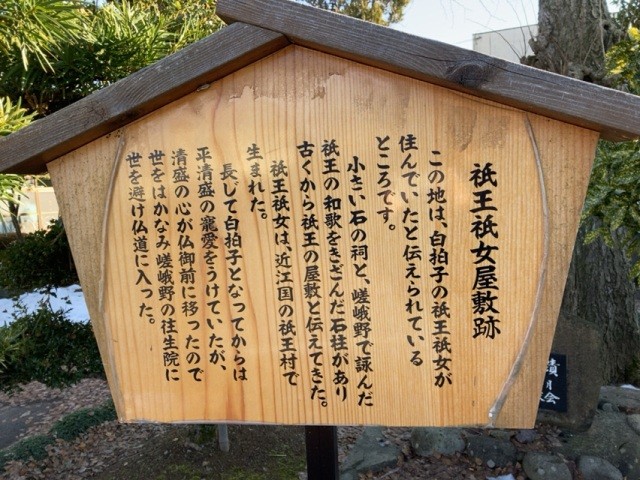 祇王祇女屋敷跡
この地は、白拍子の祇王祇女が
住んでいたと伝えられている
ところです。
小さい石の祠と、嵯峨野で詠んだ
祇王の和歌をきざんだ石柱があり
古くから祇王の屋敷と伝えてきた。
祇王祇女は、近江国の祇王村で
生まれた。
長じて白拍子となってからは
平清盛の寵愛をうけていたが、
清盛の心が仏御前に移ったので
世をはかなみ嵯峨野の往生院に
世を避け仏道に入った。